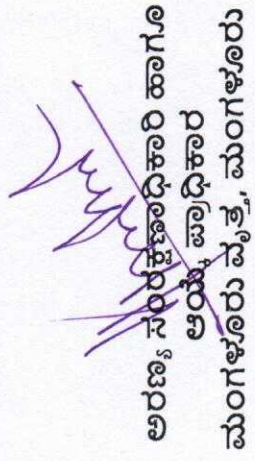 ಅರಣ್ಯ ಸಂರಕ್ಷಣಾಧಿಕಾರಿ ಹಾಗೂ
ಆಯ್ಕೆ ಪ್ರಾಧಿಕಾರ
ಮಂಗಳೂರು ವೃತ್ತ, ಮಂಗಳೂರು